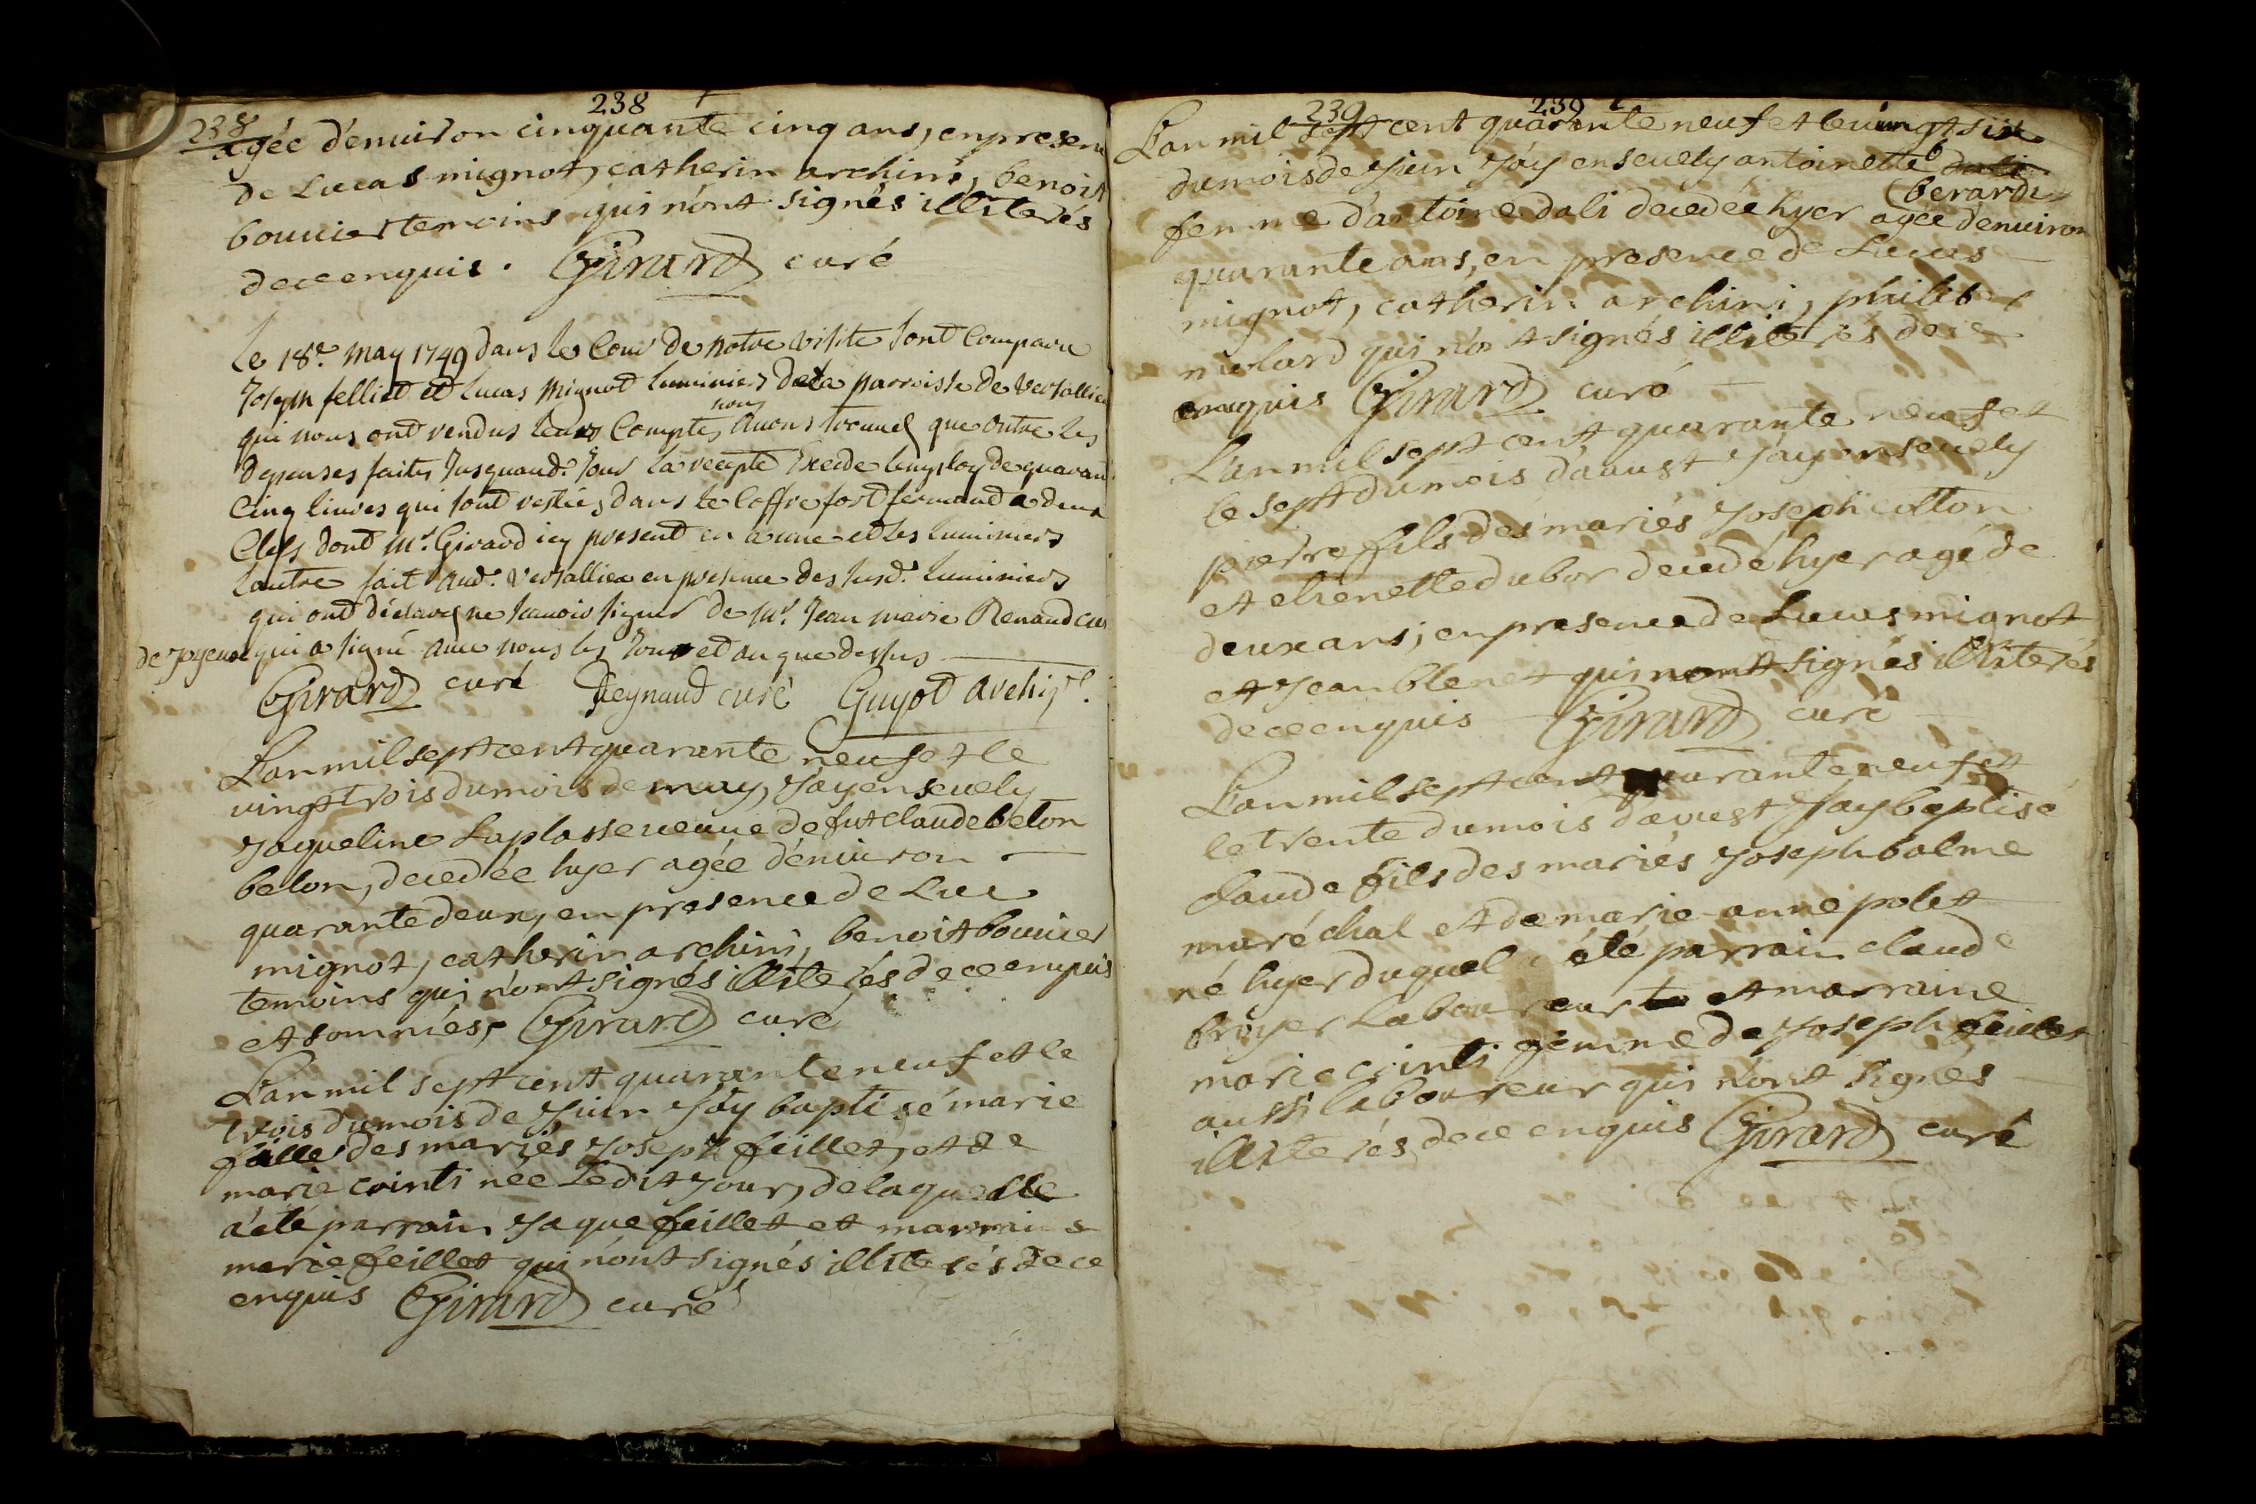 238
238
agée d'enuiron cinquante cinq ans, en presen
de Lucas mignot, catherin archini, benoit
bouuier temoins qui n'ont signés illiterés
de ce enquis. Girard curé
Le 18e. may 1749 dans le Cour de notre visite sont Comparu
Joseph felliet et Lucas Mignot luminiers de la parroisse de Versallieu
nous
qui nous ont rendus leurs Comptes, auons trouué que outre les
depenses faites Jusquaud. Jour la recepte Excede lemploy de quaran
Cinq liures qui sont restées dans le Coffre fort fermant a deux
Clefs dont Mr. Girard icy present en a une et les luminiers
lautre fait aud. Versallieu en presence des susd. luminiers
qui ont declaré ne scauoir signer de Mr. Jean marie Renaud cu
de Joyeux qui a signé auec nous les Jour et an que dessus
Girard curé Reynaud curé Guyot archip.
L'an mil sept cent quarante neuf et le
vingt trois du mois de may, J'ay enseuely
Jaqueline Laplasse ueuue de fut claude belon
belon, decedée hyer agée d'enuiron
quarante deux, en presence de Luc
mignot, catherin archini, benoit bouuier
temoins qui n'ont signés illiterés de ce enquis
et somniés, Girard curé
L'an mil sept cent quarante neuf et le
trois du mois de Juin J'ay baptisé marie
fille des mariés Joseph feillet, et de
marie cointi née Ledit Jour, de laquelle
a été parrain Jaque feillet et marraine
marie feillet qui n'ont signés illiterés de ce
enquis Girard curé
239
239
L'an mil sept cent quarante neuf et le uingt six
du mois de Juin J'ay enseuely antoinette dali
berardi
femme d'antoine dali decedée hyer agée d'enuiron
quarante ans, en presence de Lucas
mignot, catherin archini, philibe
nicolard qui n'ont signés illiterés de ce
enquis Girard curé
L'an mil sept cent quarante neuf et
le sept du mois d'aoust J'ay enseuely
pierre fils des mariés Joseph cotton
et etienette dubor decedé hyer agé de
deux ans, en presence de Lucas mignot
et Jean blenet qui n'ont signés illiterés
de ce enquis Girard curé
L'an mil sept cent quarante neuf et
le trente du mois d'aoust J'ay baptisé
claude fils des mariés Joseph balme
maréchal et de marie anne polet
né hyer duquel a été parrain claude
broyer Laboureur et marraine
marie cointi femme de Joseph feillet
aussi laboureur qui n'ont signés
illiterés de ce enquis Girard curé